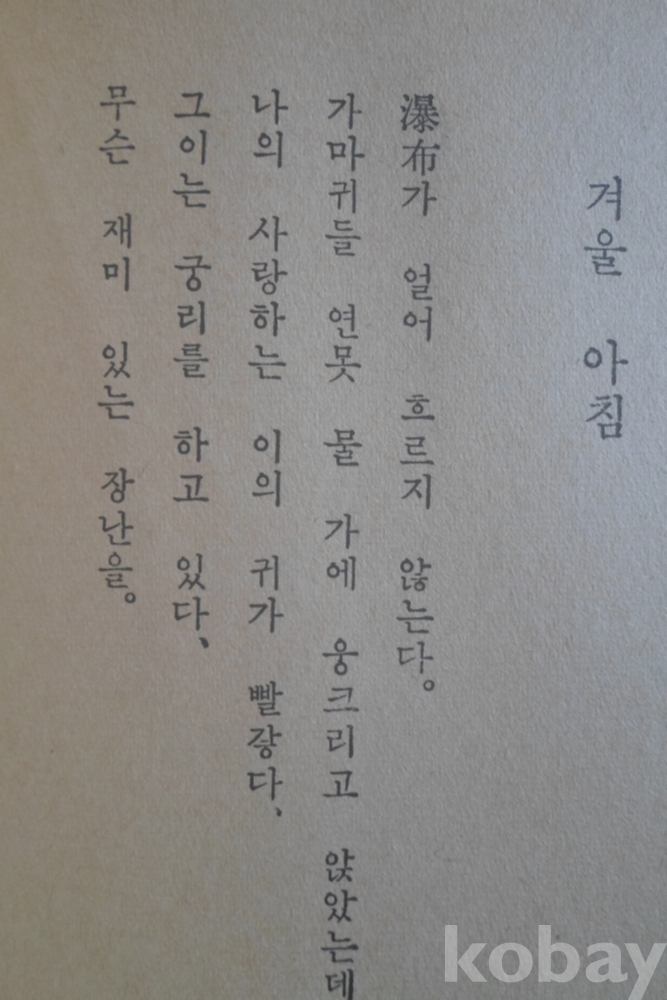 겨울 아침
瀑布가 얼어 흐르지 않는다。
가마귀들 연못 물 가에 웅크리고 앉았는데
나의 사랑하는 이의 귀가 빨갛다、
그이는 궁리를 하고 있다、
무슨 재미 있는 장난을。
kobay